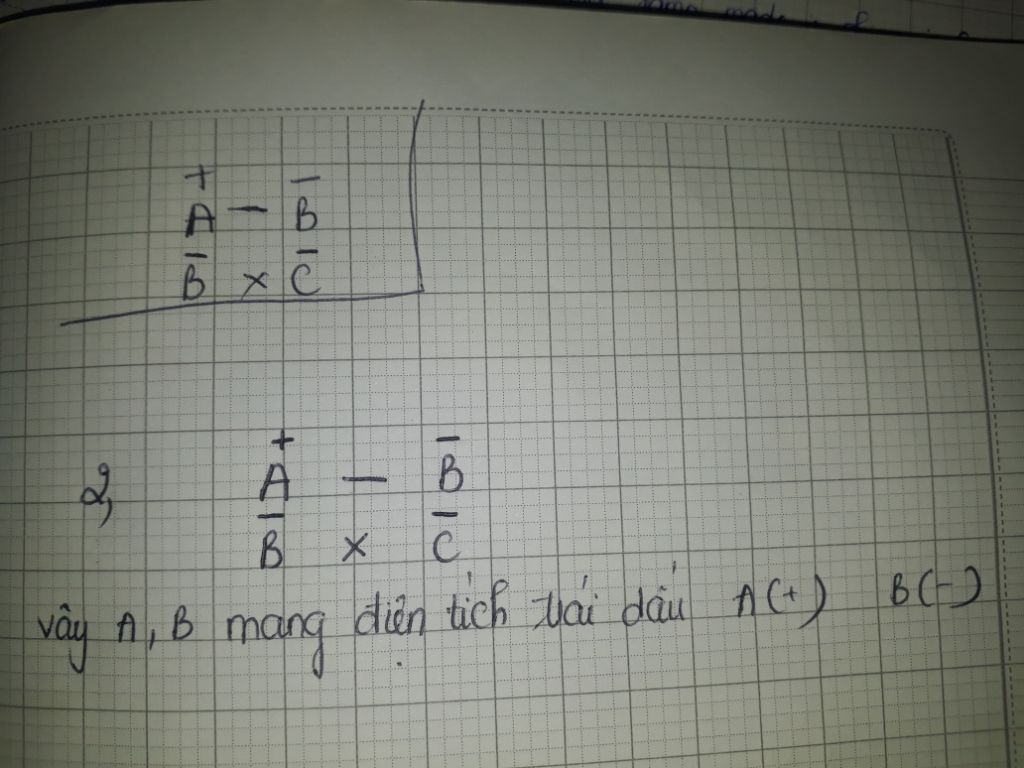 + −
A − B
− −
B × C
+ −
2, A − B
− −
B × C
vậy A, B mang điện tích trái dấu A(+) B(−)